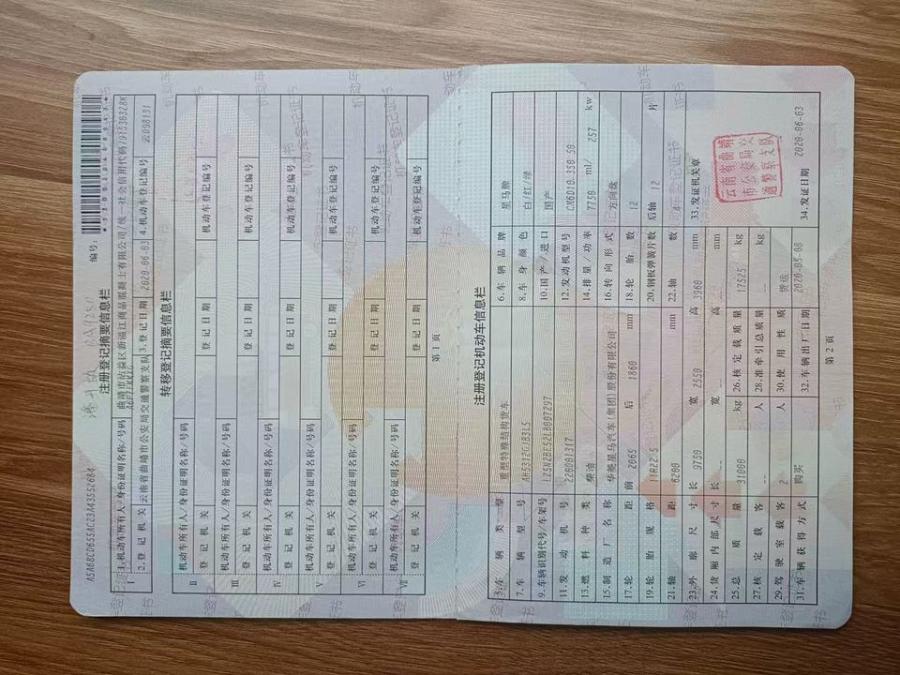 编号:
A5A68CD655AC23A4355260A
注册登记摘要信息栏
I
1.机动车所有人/身份证明名称/号码
曲靖市沾益区新溢江商品混凝土有限公司/统一社会信用代码/
2.登记机关
云南省曲靖市公安局交通警察支队
3.登记日期
2020-06-03
4.机动车登记编号
云D98131
转移登记摘要信息栏
II
机动车所有人/身份证明名称/号码
登记机关
登记日期
机动车登记编号
III
机动车所有人/身份证明名称/号码
登记机关
登记日期
机动车登记编号
IV
机动车所有人/身份证明名称/号码
登记机关
登记日期
机动车登记编号
V
机动车所有人/身份证明名称/号码
登记机关
登记日期
机动车登记编号
VI
机动车所有人/身份证明名称/号码
登记机关
登记日期
机动车登记编号
VII
机动车所有人/身份证明名称/号码
登记机关
登记日期
机动车登记编号
第1页
注册登记机动车信息栏
5.车辆类型
重型特殊结构货车
6.车辆品牌
星马牌
7.车辆型号
8.车身颜色
白/红/绿
9.车辆识别代号/车架号
10.国产/进口
国产
11.发动机号
12.发动机型号
CM6D18.350 50
13.燃料种类
柴油
14.排量/功率
7750 ml/ 257 kw
15.制造厂名称
华菱星马汽车(集团)股份有限公司
16.转向形式
方向盘
17.轮距
前 2065 后 1860 mm
18.轮胎数
12
19.轮胎规格
20.钢板弹簧片数
后轴 12 片
21.轴距
mm
22.轴数
4
23.外廓尺寸
长 9700 宽 2550 高 3960 mm
33.发证机关章
云南省曲靖
市公安局交
通警察支队
24.货厢内部尺寸
长 -- 宽 -- 高 -- mm
25.总质量
31000 kg
26.核定载质量
17525 kg
27.核定载客
-- 人
28.准牵引总质量
-- kg
29.驾驶室载客
2 人
30.使用性质
货运
34.发证日期
2020-06-03
31.车辆获得方式
购买
32.车辆出厂日期
2020-05-08
第2页